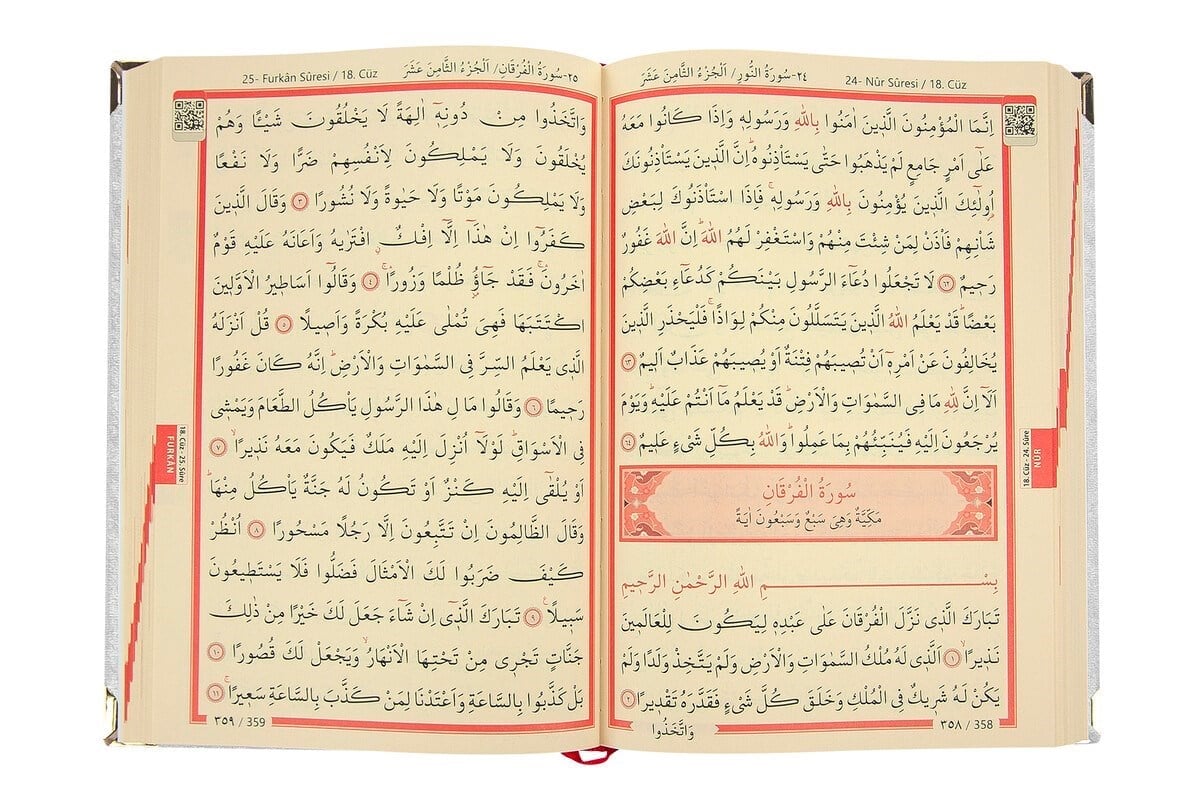 ٢٤-سُورَةُ النُّورِ/ اَلْجُزْءُ الثَّامِنَ عَشَرَ
24- Nûr Sûresi / 18. Cüz
اِنَّمَا الْمُؤْمِنُونَ الَّذ۪ينَ اٰمَنُوا بِاللّٰهِ وَرَسُولِه۪ وَاِذَا كَانُوا مَعَهُ
عَلٰٓى اَمْرٍ جَامِعٍ لَمْ يَذْهَبُوا حَتّٰى يَسْتَأْذِنُوهُۜ اِنَّ الَّذ۪ينَ يَسْتَأْذِنُونَكَ
اُو۬لٰٓئِكَ الَّذ۪ينَ يُؤْمِنُونَ بِاللّٰهِ وَرَسُولِه۪ۚ فَاِذَا اسْتَأْذَنُوكَ لِبَعْضِ
شَأْنِهِمْ فَأْذَنْ لِمَنْ شِئْتَ مِنْهُمْ وَاسْتَغْفِرْ لَهُمُ اللّٰهَۜ اِنَّ اللّٰهَ غَفُورٌ
رَح۪يمٌ ﴿٦٢﴾ لَا تَجْعَلُوا دُعَٓاءَ الرَّسُولِ بَيْنَكُمْ كَدُعَٓاءِ بَعْضِكُمْ
بَعْضًاۜ قَدْ يَعْلَمُ اللّٰهُ الَّذ۪ينَ يَتَسَلَّلُونَ مِنْكُمْ لِوَاذًاۚ فَلْيَحْذَرِ الَّذ۪ينَ
يُخَالِفُونَ عَنْ اَمْرِه۪ٓ اَنْ تُص۪يبَهُمْ فِتْنَةٌ اَوْ يُص۪يبَهُمْ عَذَابٌ اَل۪يمٌ ﴿٦٣﴾
اَلَٓا اِنَّ لِلّٰهِ مَا فِي السَّمٰوَاتِ وَالْاَرْضِۜ قَدْ يَعْلَمُ مَٓا اَنْتُمْ عَلَيْهِۜ وَيَوْمَ
يُرْجَعُونَ اِلَيْهِ فَيُنَبِّئُهُمْ بِمَا عَمِلُواۜ وَاللّٰهُ بِكُلِّ شَيْءٍ عَل۪يمٌ ﴿٦٤﴾
سُورَةُ الْفُرْقَانِ
مَكِّيَّةٌ وَهِيَ سَبْعٌ وَسَبْعُونَ اٰيَةً
بِسْمِ اللّٰهِ الرَّحْمٰنِ الرَّح۪يمِ
تَبَارَكَ الَّذ۪ي نَزَّلَ الْفُرْقَانَ عَلٰى عَبْدِه۪ لِيَكُونَ لِلْعَالَم۪ينَ
نَذ۪يرًاۙ ﴿١﴾ اَلَّذ۪ي لَهُ مُلْكُ السَّمٰوَاتِ وَالْاَرْضِ وَلَمْ يَتَّخِذْ وَلَدًا وَلَمْ
يَكُنْ لَهُ شَر۪يكٌ فِي الْمُلْكِ وَخَلَقَ كُلَّ شَيْءٍ فَقَدَّرَهُ تَقْد۪يرًا ﴿٢﴾
٣٥٨ / 358
وَاتَّخَذُوا
18. Cüz - 24. Sûre
NÛR
25- Furkân Sûresi / 18. Cüz
٢٥-سُورَةُ الْفُرْقَانِ/ اَلْجُزْءُ الثَّامِنَ عَشَرَ
وَاتَّخَذُوا مِنْ دُونِه۪ٓ اٰلِهَةً لَا يَخْلُقُونَ شَيْـًٔا وَهُمْ
يُخْلَقُونَ وَلَا يَمْلِكُونَ لِاَنْفُسِهِمْ ضَرًّا وَلَا نَفْعًا
وَلَا يَمْلِكُونَ مَوْتًا وَلَا حَيٰوةً وَلَا نُشُورًا ﴿٣﴾ وَقَالَ الَّذ۪ينَ
كَفَرُٓوا اِنْ هٰذَٓا اِلَّٓا اِفْكٌۨ افْتَرٰيهُ وَاَعَانَهُ عَلَيْهِ قَوْمٌ
اٰخَرُونَۚ فَقَدْ جَٓاؤُ۫ ظُلْمًا وَزُورًاۚ ﴿٤﴾ وَقَالُٓوا اَسَاط۪يرُ الْاَوَّل۪ينَ
اكْتَتَبَهَا فَهِيَ تُمْلٰى عَلَيْهِ بُكْرَةً وَاَص۪يلًا ﴿٥﴾ قُلْ اَنْزَلَهُ
الَّذ۪ي يَعْلَمُ السِّرَّ فِي السَّمٰوَاتِ وَالْاَرْضِۜ اِنَّهُ كَانَ غَفُورًا
رَح۪يمًا ﴿٦﴾ وَقَالُوا مَالِ هٰذَا الرَّسُولِ يَأْكُلُ الطَّعَامَ وَيَمْش۪ي
فِي الْاَسْوَاقِۜ لَوْلَٓا اُنْزِلَ اِلَيْهِ مَلَكٌ فَيَكُونَ مَعَهُ نَذ۪يرًاۙ ﴿٧﴾
اَوْ يُلْقٰٓى اِلَيْهِ كَنْزٌ اَوْ تَكُونُ لَهُ جَنَّةٌ يَأْكُلُ مِنْهَاۜ
وَقَالَ الظَّالِمُونَ اِنْ تَتَّبِعُونَ اِلَّا رَجُلًا مَسْحُورًا ﴿٨﴾ اُنْظُرْ
كَيْفَ ضَرَبُوا لَكَ الْاَمْثَالَ فَضَلُّوا فَلَا يَسْتَط۪يعُونَ
سَب۪يلًا۟ ﴿٩﴾ تَبَارَكَ الَّذ۪ٓي اِنْ شَٓاءَ جَعَلَ لَكَ خَيْرًا مِنْ ذٰلِكَ
جَنَّاتٍ تَجْر۪ي مِنْ تَحْتِهَا الْاَنْهَارُۙ وَيَجْعَلْ لَكَ قُصُورًا ﴿١٠﴾
بَلْ كَذَّبُوا بِالسَّاعَةِ وَاَعْتَدْنَا لِمَنْ كَذَّبَ بِالسَّاعَةِ سَع۪يرًاۚ ﴿١١﴾
٣٥٩ / 359
18. Cüz - 25. Sûre
FURKÂN